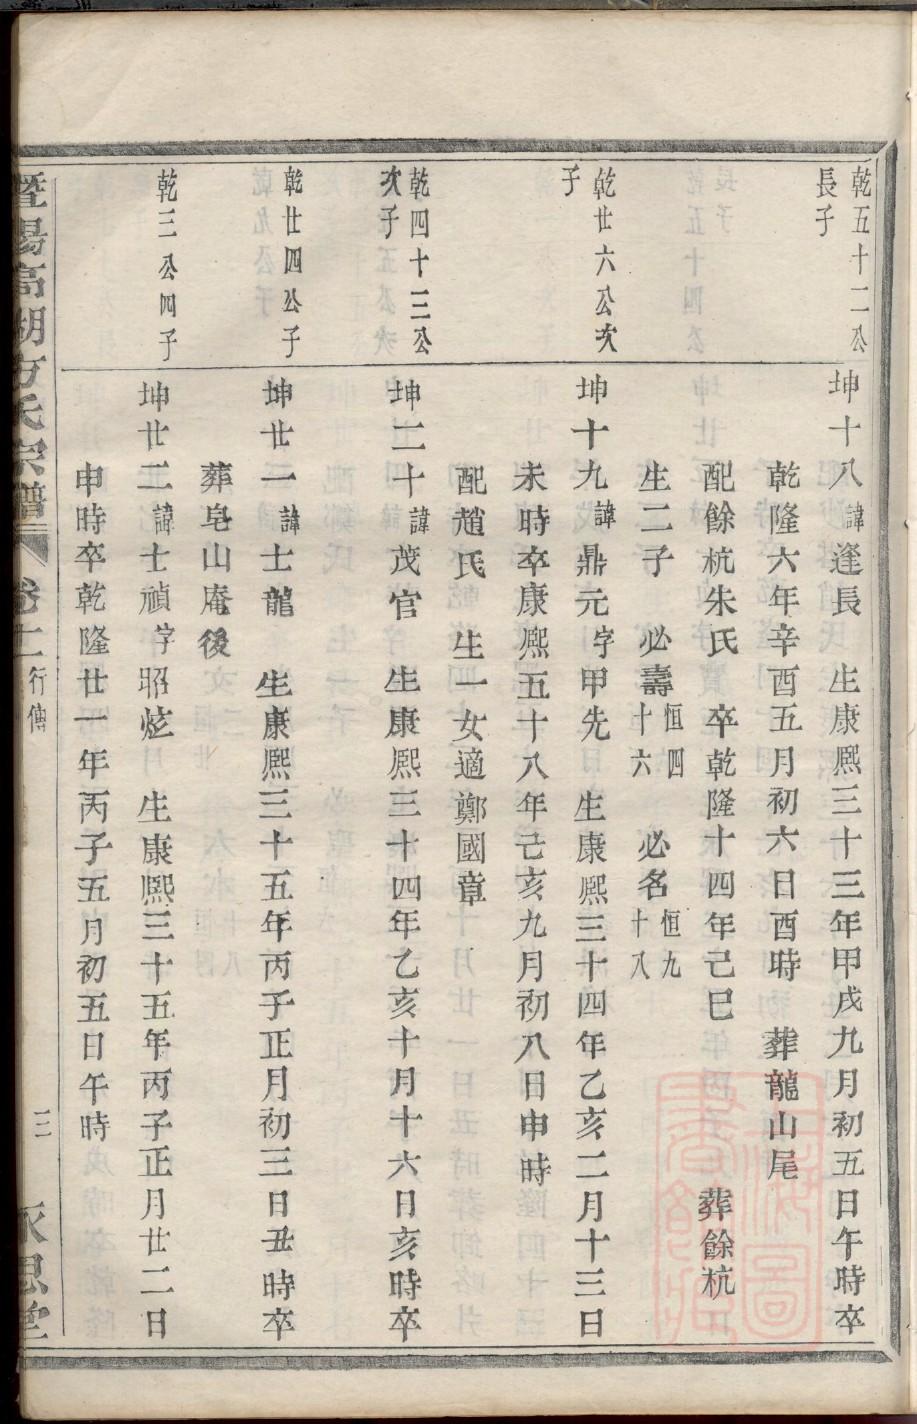 乾五十二公
長子
坤十八諱逢長　生康熙三十三年甲戌九月初五日午時卒
乾隆六年辛酉五月初六日酉時　葬龍山尾
配餘杭朱氏　卒乾隆十四年己巳　葬餘杭
生二子　必壽恒四十六　必名恒九十八
乾廿六公次
子
坤十九諱鼎元字甲先　生康熙三十四年乙亥二月十三日
未時卒康熙五十八年己亥九月初八日申時
配趙氏　生一女適鄭國章
乾四十三公
次子
坤二十諱茂官　生康熙三十四年乙亥十月十六日亥時卒
乾廿四公子
坤廿一諱士龍　生康熙三十五年丙子正月初三日丑時卒
葬皂山庵後
乾三公四子
坤廿二諱士禎字昭炫　生康熙三十五年丙子正月廿二日
申時卒乾隆廿一年丙子五月初五日午時
暨陽高湖方氏宗譜　卷十二　行傳　三　永思堂